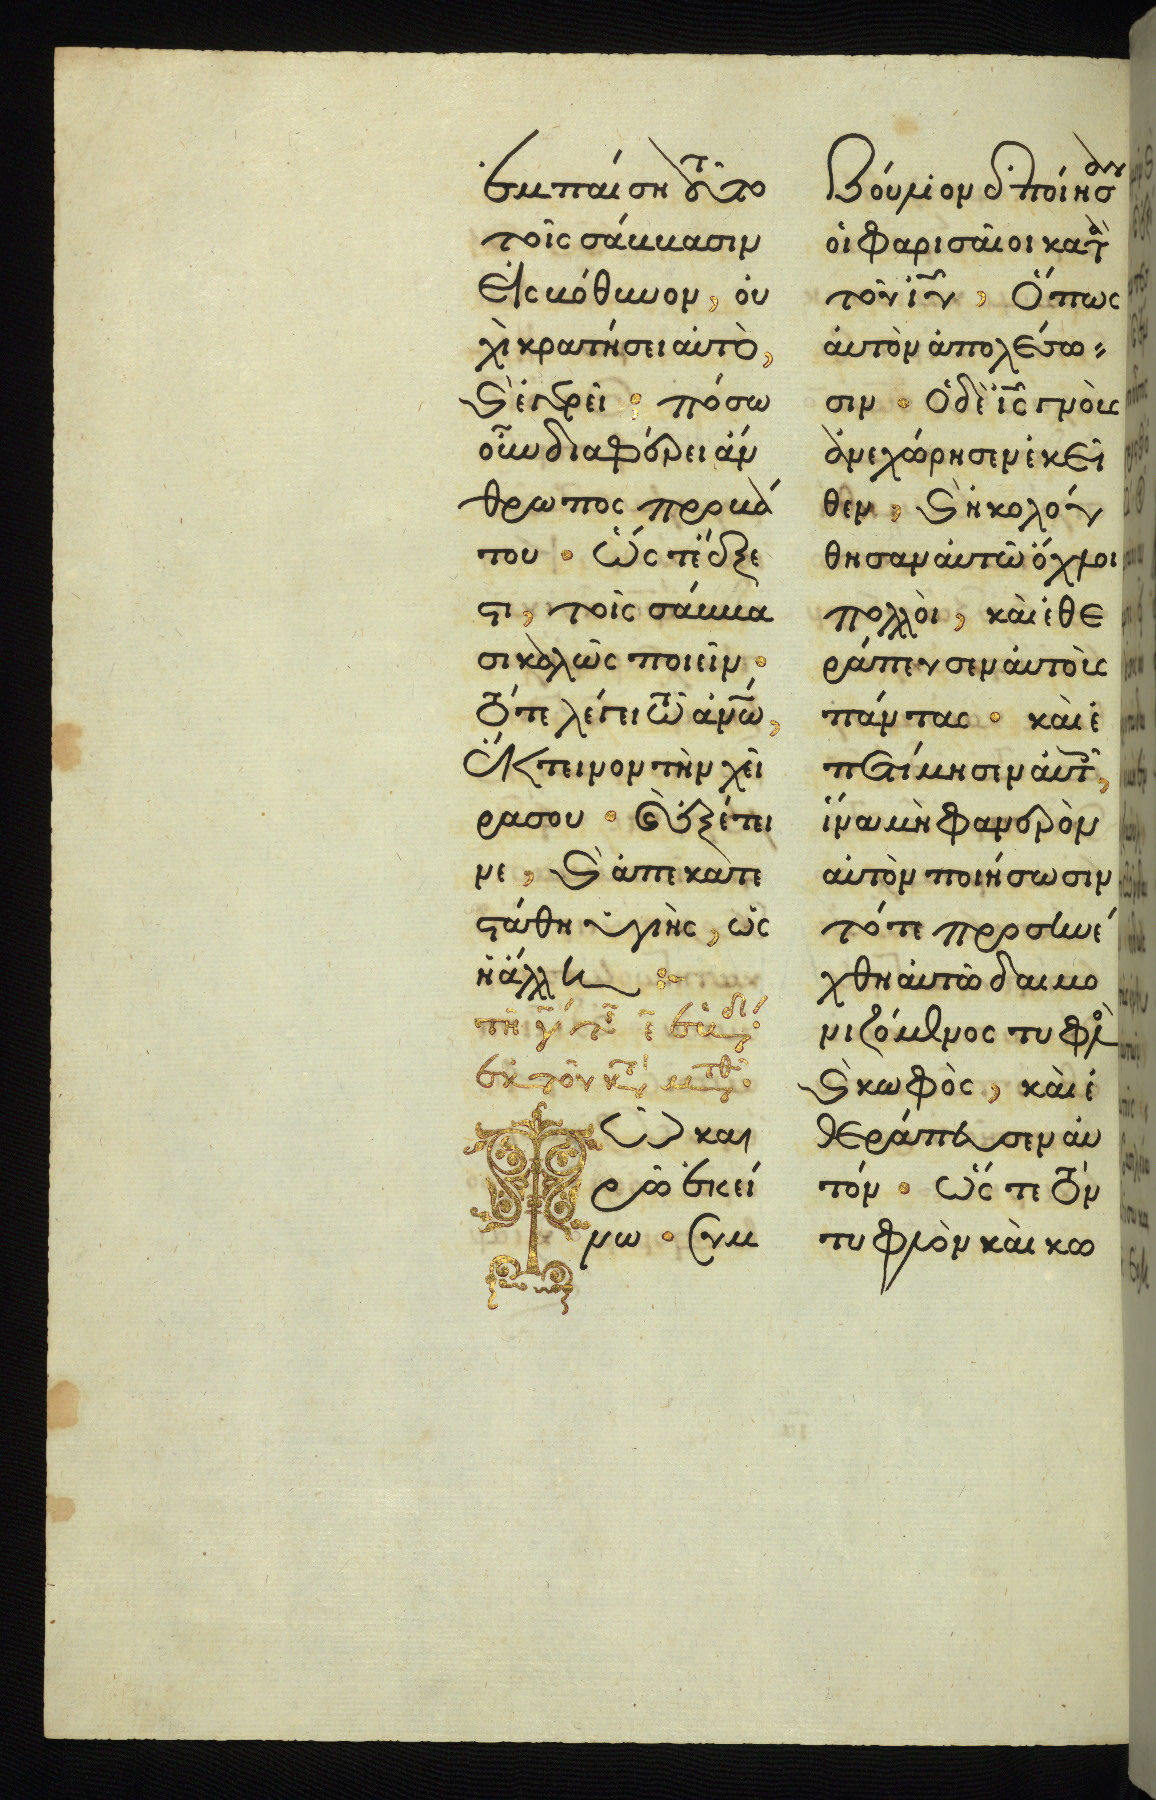 ἐμπέσῃ τοῦτο
τοῖς σάββασιν
εἰς βόθυνον, οὐ
χὶ κρατήσει αὐτὸ,
καὶ ἐγερεῖ; πόσω
οὖν διαφέρει ἄν
θρωπος προβά
του· ὥστε ἔξε
στι, τοῖς σάββα
σι καλῶς ποιεῖν·
τότε λέγει τῶ ἀνῶ,
ἔκτεινον τὴν χεῖ
ρα σου· καὶ ἐξέτει
νε, καὶ ἀπεκατε
στάθη ὑγιὴς, ὡς
ἡ ἄλλη :~
ἐκ τοῦ κατὰ μτθ·
Τῶ και
ρῶ ἐκεί
νω· συμ
βούλιον ἐποίησαν
οἱ φαρισαῖοι κατὰ
τοῦ ἰῦ, ὅπως
αὐτὸν ἀπολέσω
σιν· ὁ δὲ ἰς γνοὺς
ἀνεχώρησεν ἐκεῖ
θεν, καὶ ἠκολού
θησαν αὐτῶ ὄχλοι
πολλοὶ, καὶ ἐθε
ράπευσεν αὐτοὺς
πάντας· καὶ ἐ
πετίμησεν αὐτοῖς,
ἵνα μὴ φανερὸν
αὐτὸν ποιήσωσιν
τότε προσηνέ
χθη αὐτῶ δαιμο
νιζόμενος τυφλὸς
καὶ κωφὸς, καὶ ἐ
θεράπευσεν αὐ
τόν· ὥστε τὸν
τυφλὸν καὶ κω